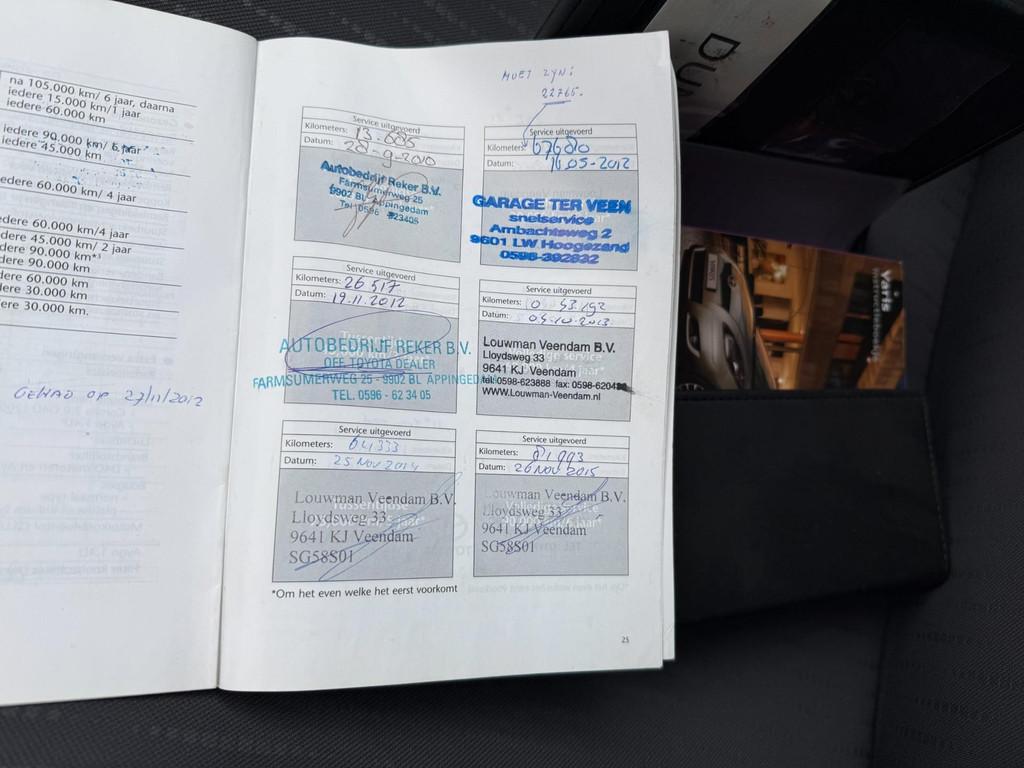 na 105.000 km/ 6 jaar, daarna
iedere 15.000 km/1 jaar
iedere 60.000 km
iedere 90.000 km/ 6 jaar*
iedere 45.000 km
edere 60.000 km/ 4 jaar
edere 60.000 km/4 jaar
dere 45.000 km/ 2 jaar
dere 90.000 km*³
dere 90.000 km
dere 60.000 km
dere 30.000 km
ere 30.000 km.
OP 27/11/2012
MOET ZYN:
22765.
Service uitgevoerd
Kilometers: 13-685
Datum: 28-9-2010
Autobedrijf Reker B.V.
Farmsumerweg 25
9902 BL Appingedam
Tel. 0596 - 623405
Service uitgevoerd
Kilometers: 67680
Datum: 16.05-2012
GARAGE TER VEEN
snelservice
Ambachtsweg 2
9601 LW Hoogezand
0598-392832
Service uitgevoerd
Kilometers: 26 517
Datum: 19.11.2012
AUTOBEDRIJF REKER B.V.
OFF. TOYOTA DEALER
FARMSUMERWEG 25 - 9902 BL APPINGEDAM
TEL. 0596 - 62 34 05
Service uitgevoerd
Kilometers: 0 53.192
Datum: 04-10-2013
Louwman Veendam B.V.
Lloydsweg 33
9641 KJ Veendam
tel: 0598-623888 fax: 0598-620
WWW.Louwman-Veendam.nl
Service uitgevoerd
Kilometers: 64333
Datum: 25 NOV 2014
Louwman Veendam B.V.
Lloydsweg 33
9641 KJ Veendam
SG58S01
Service uitgevoerd
Kilometers: 81993
Datum: 26 NOV 2015
Louwman Veendam B.V.
Lloydsweg 33
9641 KJ Veendam
SG58S01
*Om het even welke het eerst voorkomt
25
Du
Yaris